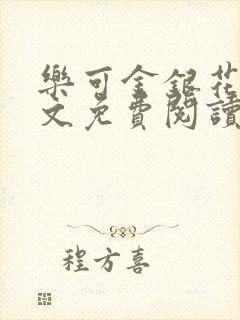 樂可金銀花
文免費閱讀
程方喜